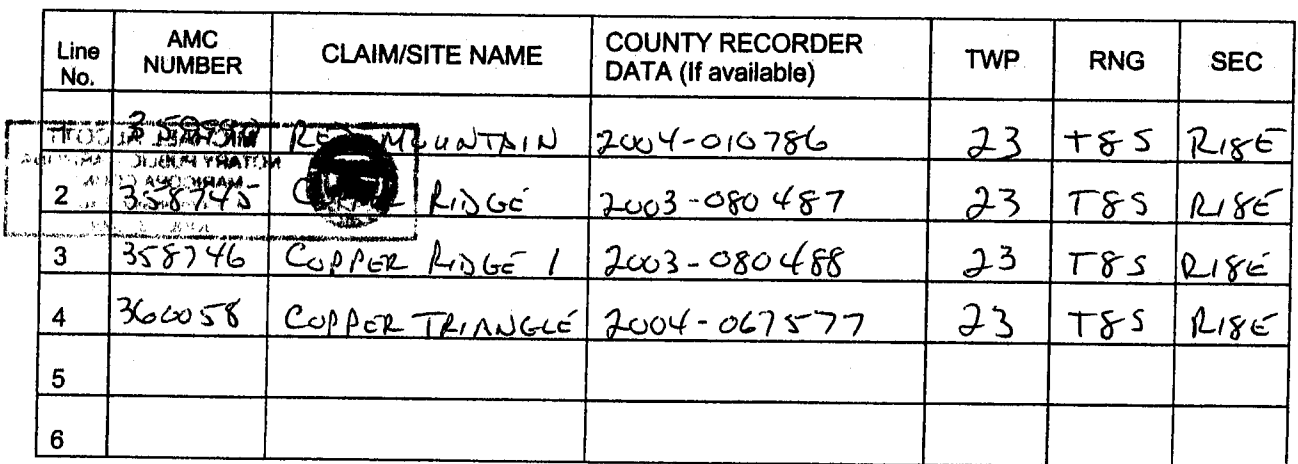 Line No. AMC NUMBER CLAIM/SITE NAME COUNTY RECORDER DATA (If available) TWP RNG SEC
RED MOUNTAIN 2004-010786 23 T8S R18E
2 358745 RIDGE 2003-080487 23 T8S R18E
3 358746 COPPER RIDGE 1 2003-080488 23 T8S R18E
4 360058 COPPER TRIANGLE 2004-067577 23 T8S R18E
5
6